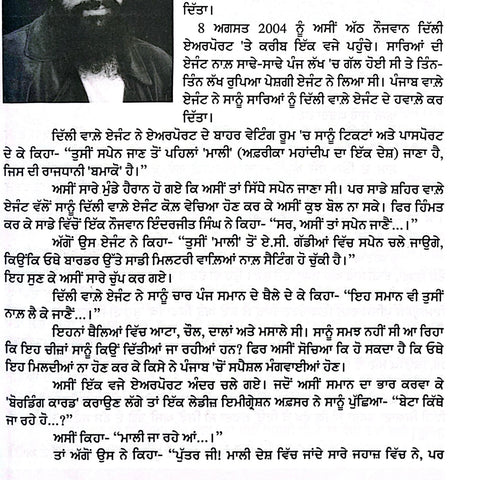 ਦਿੱਤਾ।
8 ਅਗਸਤ 2004 ਨੂੰ ਅਸੀਂ ਅੱਠ ਨੌਜਵਾਨ ਦਿੱਲੀ
ਏਅਰਪੋਰਟ 'ਤੇ ਕਰੀਬ ਇੱਕ ਵਜੇ ਪਹੁੰਚੇ। ਸਾਰਿਆਂ ਦੀ
ਏਜੰਟ ਨਾਲ਼ ਸਾਢੇ-ਸਾਢੇ ਪੰਜ ਲੱਖ 'ਚ ਗੱਲ ਹੋਈ ਸੀ ਤੇ ਤਿੰਨ-
ਤਿੰਨ ਲੱਖ ਰੁਪਿਆ ਪੇਸ਼ਗੀ ਏਜੰਟ ਨੇ ਲਿਆ ਸੀ। ਪੰਜਾਬ ਵਾਲ਼ੇ
ਏਜੰਟ ਨੇ ਸਾਨੂੰ ਸਾਰਿਆਂ ਨੂੰ ਦਿੱਲੀ ਵਾਲ਼ੇ ਏਜੰਟ ਦੇ ਹਵਾਲੇ ਕਰ
ਦਿੱਤਾ।
ਦਿੱਲੀ ਵਾਲ਼ੇ ਏਜੰਟ ਨੇ ਏਅਰਪੋਰਟ ਦੇ ਬਾਹਰ ਵੇਟਿੰਗ ਰੂਮ 'ਚ ਸਾਨੂੰ ਟਿਕਟਾਂ ਅਤੇ ਪਾਸਪੋਰਟ
ਦੇ ਕੇ ਕਿਹਾ- “ਤੁਸੀਂ ਸਪੇਨ ਜਾਣ ਤੋਂ ਪਹਿਲਾਂ 'ਮਾਲੀ' (ਅਫ਼ਰੀਕਾ ਮਹਾਂਦੀਪ ਦਾ ਇੱਕ ਦੇਸ਼) ਜਾਣਾ ਹੈ,
ਜਿਸ ਦੀ ਰਾਜਧਾਨੀ 'ਬਮਾਕੋ' ਹੈ।”
ਅਸੀਂ ਸਾਰੇ ਮੁੰਡੇ ਹੈਰਾਨ ਹੋ ਗਏ ਕਿ ਅਸੀਂ ਤਾਂ ਸਿੱਧੇ ਸਪੇਨ ਜਾਣਾ ਸੀ। ਪਰ ਸਾਡੇ ਸ਼ਹਿਰ ਵਾਲ਼ੇ
ਏਜੰਟ ਵੱਲੋਂ ਸਾਨੂੰ ਦਿੱਲੀ ਵਾਲ਼ੇ ਏਜੰਟ ਕੋਲ਼ ਵੇਚਿਆ ਹੋਣ ਕਰ ਕੇ ਅਸੀਂ ਕੁਝ ਬੋਲ ਨਾ ਸਕੇ। ਫਿਰ ਹਿੰਮਤ
ਕਰ ਕੇ ਸਾਡੇ ਵਿੱਚੋਂ ਇੱਕ ਨੌਜਵਾਨ ਇੰਦਰਜੀਤ ਸਿੰਘ ਨੇ ਕਿਹਾ- “ਸਰ, ਅਸੀਂ ਤਾਂ ਸਪੇਨ ਜਾਣੈਂ...।”
ਅੱਗੋਂ ਉਸ ਏਜੰਟ ਨੇ ਕਿਹਾ- “ਤੁਸੀਂ 'ਮਾਲੀ' ਤੋਂ ਏ.ਸੀ. ਗੱਡੀਆਂ ਵਿੱਚ ਸਪੇਨ ਚਲੇ ਜਾਉਗੇ,
ਕਿਉਂਕਿ ਓਥੇ ਬਾਰਡਰ ਉੱਤੇ ਸਾਡੀ ਮਿਲਟਰੀ ਵਾਲਿਆਂ ਨਾਲ਼ ਸੈਟਿੰਗ ਹੋ ਚੁੱਕੀ ਹੈ।”
ਇਹ ਸੁਣ ਕੇ ਅਸੀਂ ਸਾਰੇ ਚੁੱਪ ਕਰ ਗਏ।
ਦਿੱਲੀ ਵਾਲ਼ੇ ਏਜੰਟ ਨੇ ਸਾਨੂੰ ਚਾਰ ਪੰਜ ਸਮਾਨ ਦੇ ਥੈਲੇ ਦੇ ਕੇ ਕਿਹਾ- “ਇਹ ਸਮਾਨ ਵੀ ਤੁਸੀਂ
ਨਾਲ਼ ਲੈ ਕੇ ਜਾਣੈਂ...।”
ਇਹਨਾਂ ਥੈਲਿਆਂ ਵਿੱਚ ਆਟਾ, ਚੌਲ, ਦਾਲਾਂ ਅਤੇ ਮਸਾਲੇ ਸੀ। ਸਾਨੂੰ ਸਮਝ ਨਹੀਂ ਸੀ ਆ ਰਿਹਾ
ਕਿ ਇਹ ਚੀਜ਼ਾਂ ਸਾਨੂੰ ਕਿਉਂ ਦਿੱਤੀਆਂ ਜਾ ਰਹੀਆਂ ਹਨ? ਫਿਰ ਅਸੀਂ ਸੋਚਿਆ ਕਿ ਹੋ ਸਕਦਾ ਹੈ ਕਿ ਓਥੇ
ਇਹ ਮਿਲਦੀਆਂ ਨਾ ਹੋਣ ਕਰ ਕੇ ਕਿਸੇ ਨੇ ਪੰਜਾਬ 'ਚੋਂ ਸਪੈਸ਼ਲ ਮੰਗਵਾਈਆਂ ਹੋਣ।
ਅਸੀਂ ਇੱਕ ਵਜੇ ਏਅਰਪੋਰਟ ਅੰਦਰ ਚਲੇ ਗਏ। ਜਦੋਂ ਅਸੀਂ ਸਮਾਨ ਦਾ ਭਾਰ ਕਰਵਾ ਕੇ
'ਬੋਰਡਿੰਗ ਕਾਰਡ' ਕਰਾਉਣ ਲੱਗੇ ਤਾਂ ਇੱਕ ਲੇਡੀਜ਼ ਇਮੀਗ੍ਰੇਸ਼ਨ ਅਫ਼ਸਰ ਨੇ ਸਾਨੂੰ ਪੁੱਛਿਆ- “ਬੇਟਾ ਕਿੱਥੇ
ਜਾ ਰਹੇ ਹੋ...?”
ਅਸੀਂ ਕਿਹਾ- “ਮਾਲੀ ਜਾ ਰਹੇ ਆਂ...।”
ਤਾਂ ਅੱਗੋਂ ਉਸ ਨੇ ਕਿਹਾ- “ਪੁੱਤਰ ਜੀ! ਮਾਲੀ ਦੇਸ਼ ਵਿੱਚ ਜਾਂਦੇ ਸਾਰੇ ਜਹਾਜ਼ ਵਿੱਚ ਨੇ, ਪਰ